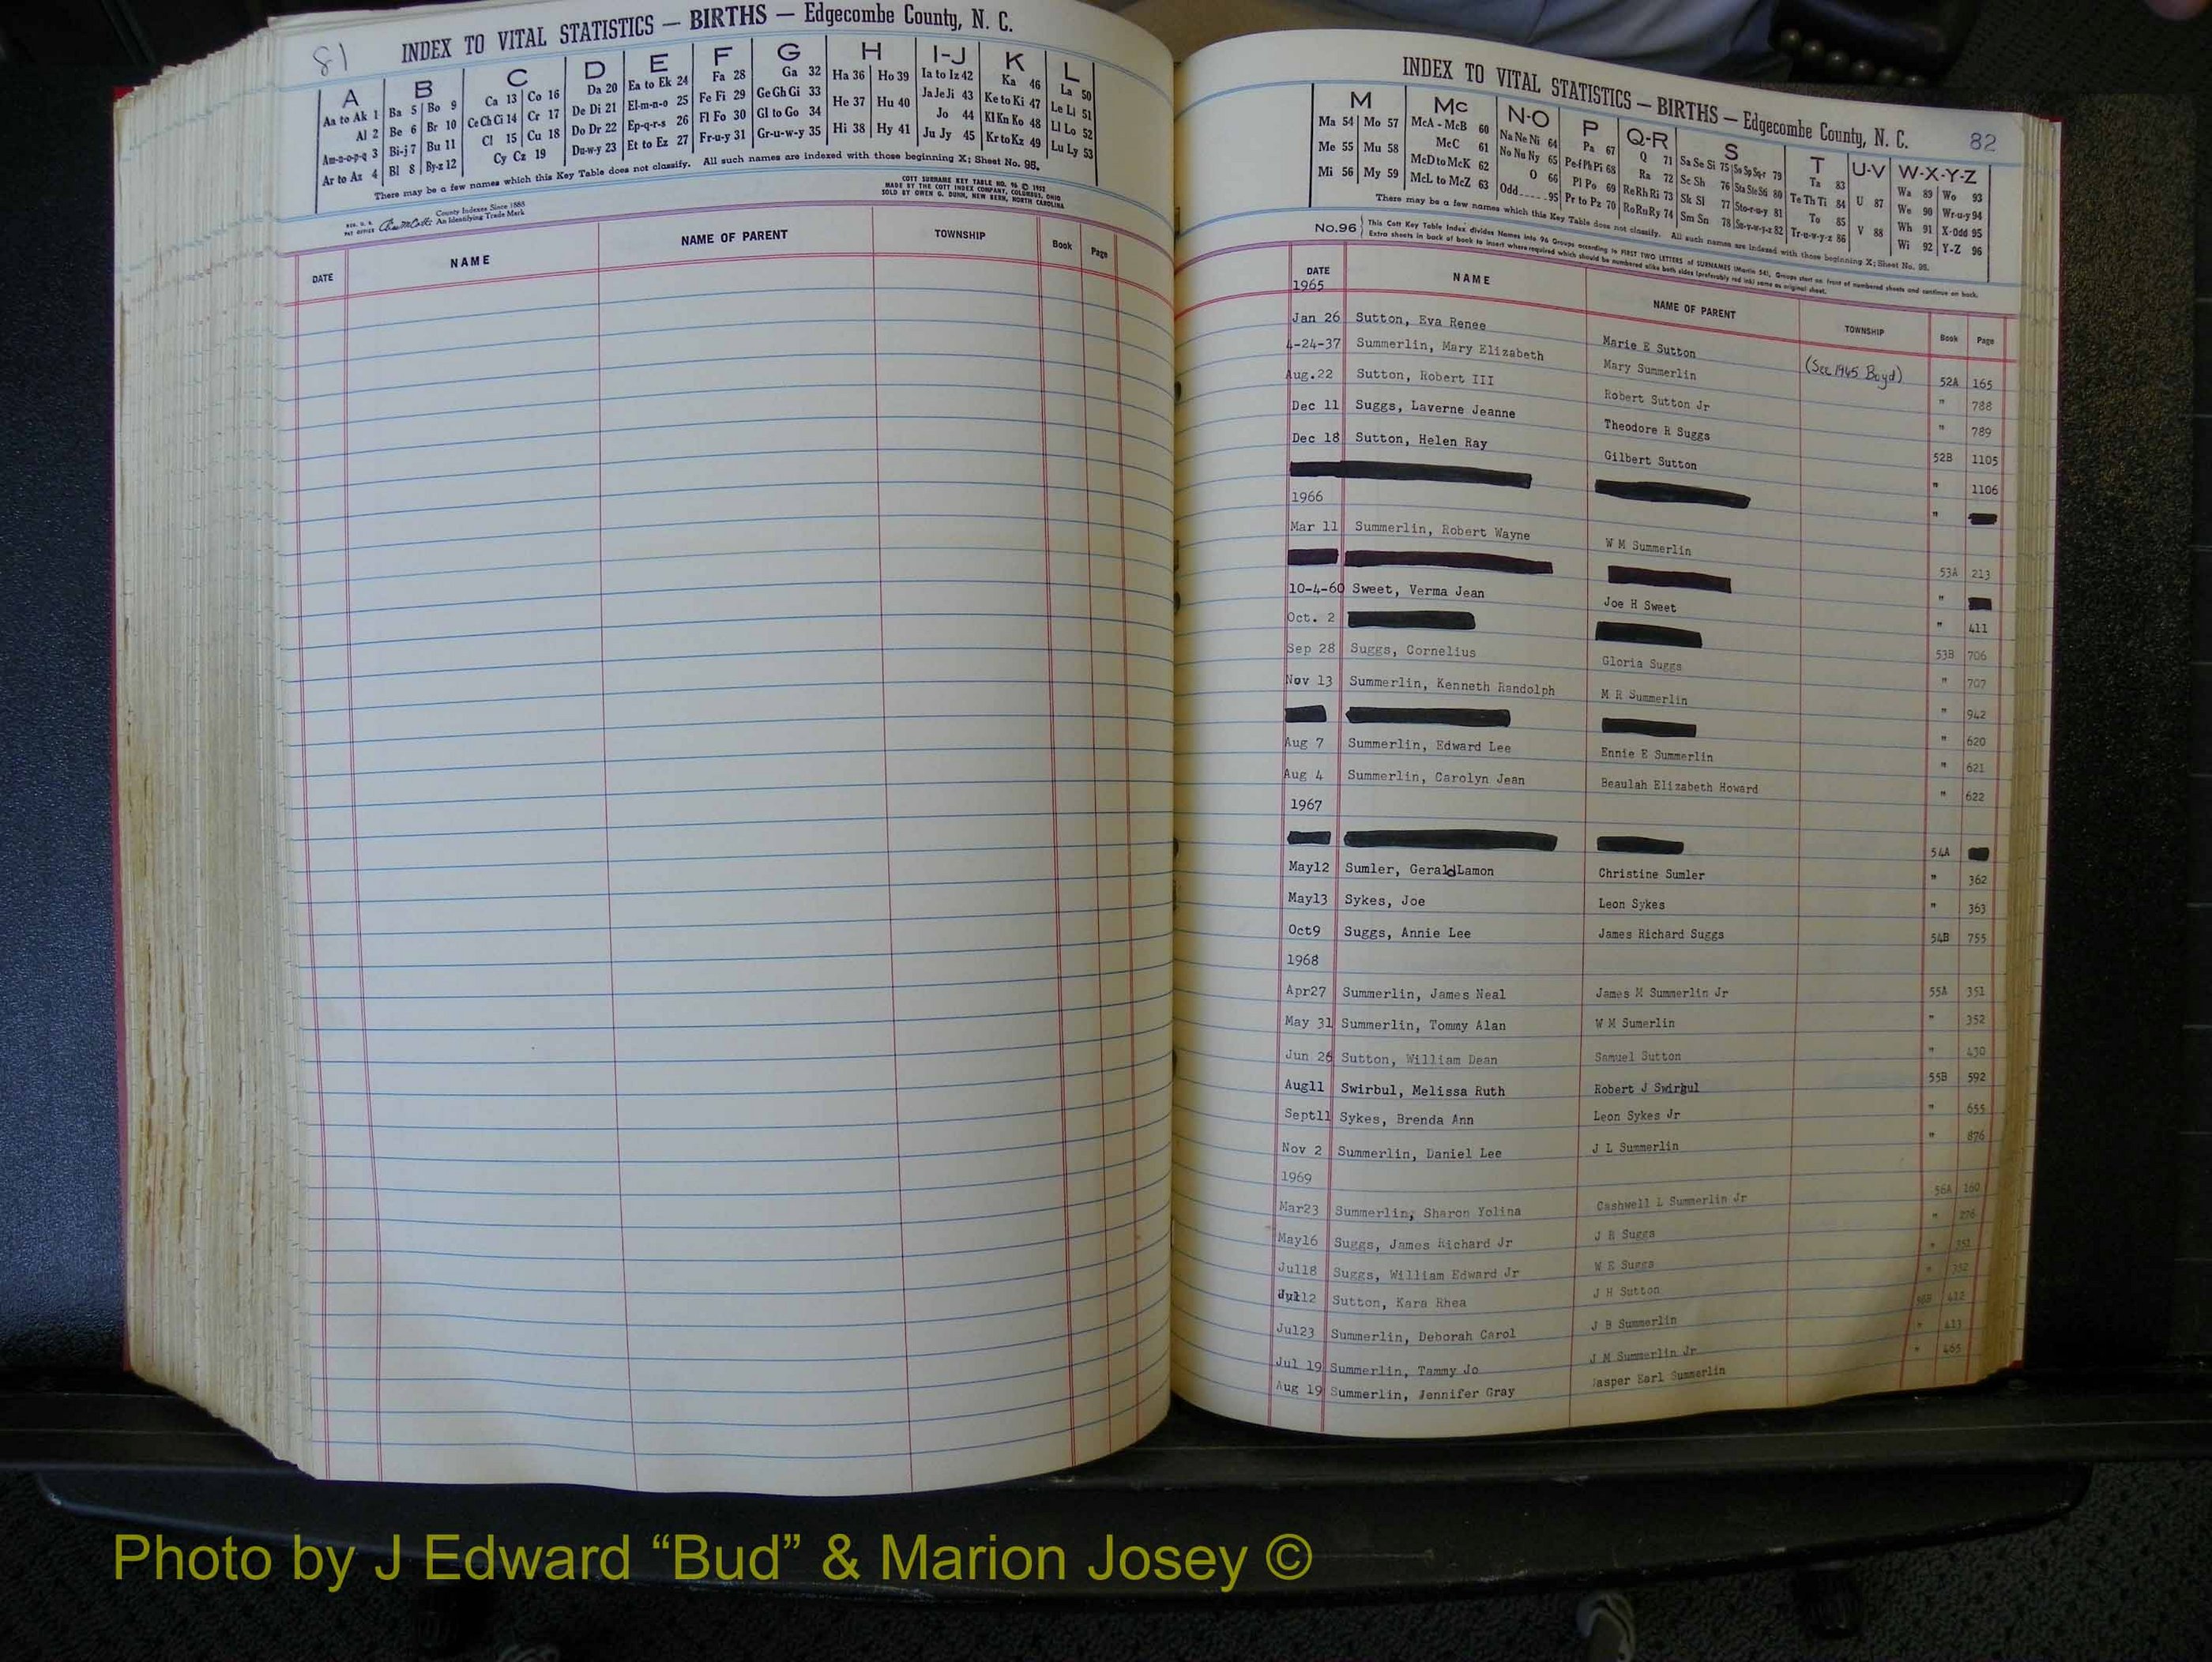 81
INDEX TO VITAL STATISTICS — BIRTHS — Edgecombe County, N. C.
A B C D E F G H I-J K L
Aa to Ak 1 Ba 5 Bo 9 Ca 13 Co 16 Da 20 Ea to Ek 24 Fa 28 Ga 32 Ha 36 Ho 39 Ia to Iz 42 Ka 46 La 50
Al 2 Be 6 Br 10 Ce Ch Ci 14 Cr 17 De Di 21 El-m-n-o 25 Fe Fi 29 Ge Gh Gi 33 He 37 Hu 40 Ja Je Ji 43 Ke to Ki 47 Le Li 51
Am-n-o-p-q 3 Bi-j 7 Bu 11 Cl 15 Cu 18 Do Dr 22 Ep-q-r-s 26 Fl Fo 30 Gl to Go 34 Hi 38 Hy 41 Jo 44 Kl Kn Ko 48 Ll Lo 52
Ar to Az 4 Bl 8 By-z 12 Cy Cz 19 Du-w-y 23 Et to Ez 27 Fr-u-y 31 Gr-u-w-y 35 Ju Jy 45 Kr to Kz 49 Lu Ly 53
There may be a few names which this Key Table does not classify. All such names are indexed with those beginning X; Sheet No. 95.
REG. U. S. PAT OFFICE County Indexes Since 1888 An Identifying Trade Mark
COTT SURNAME KEY TABLE NO. 96 © 1952
MADE BY THE COTT INDEX COMPANY, COLUMBUS, OHIO
SOLD BY OWEN G. DUNN, NEW BERN, NORTH CAROLINA
DATE NAME NAME OF PARENT TOWNSHIP Book Page
INDEX TO VITAL STATISTICS — BIRTHS — Edgecombe County, N. C. 82
M Mc N-O P Q-R S T U-V W-X-Y-Z
Ma 54 Mo 57 McA - McB 60 Na Ne Ni 64 Pa 67 Q 71 Sa Se Si 75 So Sp Sq-r 79 Ta 83 U 87 Wa 89 Wo 93
Me 55 Mu 58 McC 61 No Nu Ny 65 Pe-f Ph Pi 68 Ra 72 Sc Sh 76 Sta Ste Sti 80 Te Th Ti 84 V 88 We 90 Wr-u-y 94
Mi 56 My 59 McD to McK 62 O 66 Pl Po 69 Re Rh Ri 73 Sk Sl 77 Sto-r-u-y 81 To 85 Wh 91 X-Odd 95
McL to McZ 63 Odd 95 Pr to Pz 70 Ro Ru Ry 74 Sm Sn 78 Su-v-w-y-z 82 Tr-u-w-y-z 86 Wi 92 Y-Z 96
There may be a few names which this Key Table does not classify. All such names are indexed with those beginning X; Sheet No. 95.
No.96 This Cott Key Table Index divides Names into 96 Groups according to FIRST TWO LETTERS of SURNAMES (Martin 54). Groups start on front of numbered sheets and continue on back.
Extra sheets in back of book to insert where required which should be numbered alike both sides (preferably red ink) same as original sheet.
DATE NAME NAME OF PARENT TOWNSHIP Book Page
1965
Jan 26 Sutton, Eva Renee Marie E Sutton 52A 165
4-24-37 Summerlin, Mary Elizabeth Mary Summerlin (See 1965 Boyd) " 788
Aug.22 Sutton, Robert III Robert Sutton Jr " 789
Dec 11 Suggs, Laverne Jeanne Theodore R Suggs 52B 1105
Dec 18 Sutton, Helen Ray Gilbert Sutton " 1106
"
1966
Mar 11 Summerlin, Robert Wayne W M Summerlin 53A 213
"
10-4-60 Sweet, Verma Jean Joe H Sweet " 411
Oct. 2 53B 706
Sep 28 Suggs, Cornelius Gloria Suggs " 707
Nov 13 Summerlin, Kenneth Randolph M R Summerlin " 942
" 620
Aug 7 Summerlin, Edward Lee Ennie E Summerlin " 621
Aug 4 Summerlin, Carolyn Jean Beaulah Elizabeth Howard " 622
1967
54A
May12 Sumler, GeraldLamon Christine Sumler " 362
May13 Sykes, Joe Leon Sykes " 363
Oct9 Suggs, Annie Lee James Richard Suggs 54B 755
1968
Apr27 Summerlin, James Neal James M Summerlin Jr 55A 351
May 31 Summerlin, Tommy Alan W M Sumerlin " 352
Jun 26 Sutton, William Dean Samuel Sutton " 430
Aug11 Swirbul, Melissa Ruth Robert J Swirbul 55B 592
Sept11 Sykes, Brenda Ann Leon Sykes Jr " 655
Nov 2 Summerlin, Daniel Lee J L Summerlin " 876
1969
Mar23 Summerlin, Sharon Yolina Cashwell L Summerlin Jr 56A 160
May16 Suggs, James Richard Jr J R Suggs " 276
Jul18 Suggs, William Edward Jr W E Suggs " 351
Jul12 Sutton, Kara Rhea J H Sutton " 352
Jul23 Summerlin, Deborah Carol J B Summerlin 56B 412
Jul 19 Summerlin, Tammy Jo J M Summerlin Jr " 413
Aug 19 Summerlin, Jennifer Gray Jasper Earl Summerlin " 465
Photo by J Edward “Bud” & Marion Josey ©